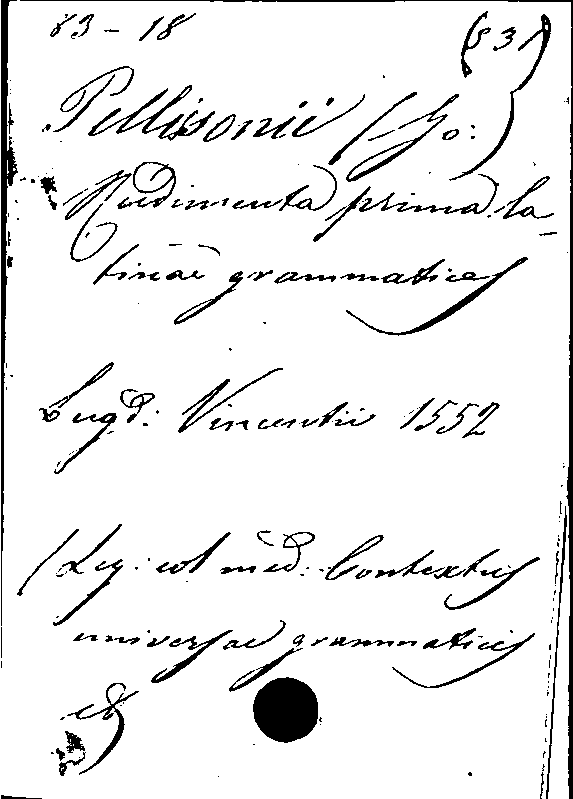 83-18 (831)
Pellisonii (Jo:)
Rudimenta prima la-
tinae grammatices
Lugd: Vincentii 1552
(Leg: col med: Contextus
universae grammatices
etc)